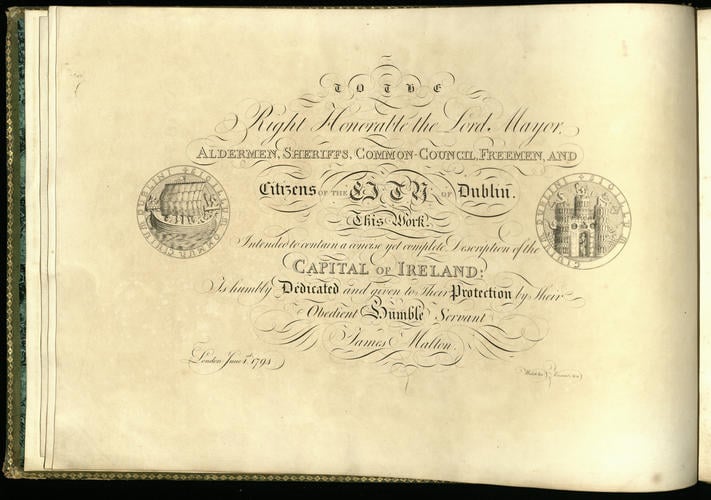 TO THE
Right Honorable the Lord Mayor,
ALDERMEN, SHERIFFS, COMMON-COUNCIL, FREEMEN, AND
Citizens OF THE CITY OF Dublin.
This Work.
Intended to contain a concise yet complete Description of the
CAPITAL OF IRELAND:
Is humbly Dedicated and given to Their Protection by Their
Obedient Humble Servant
James Malton.
London June 1st 1794